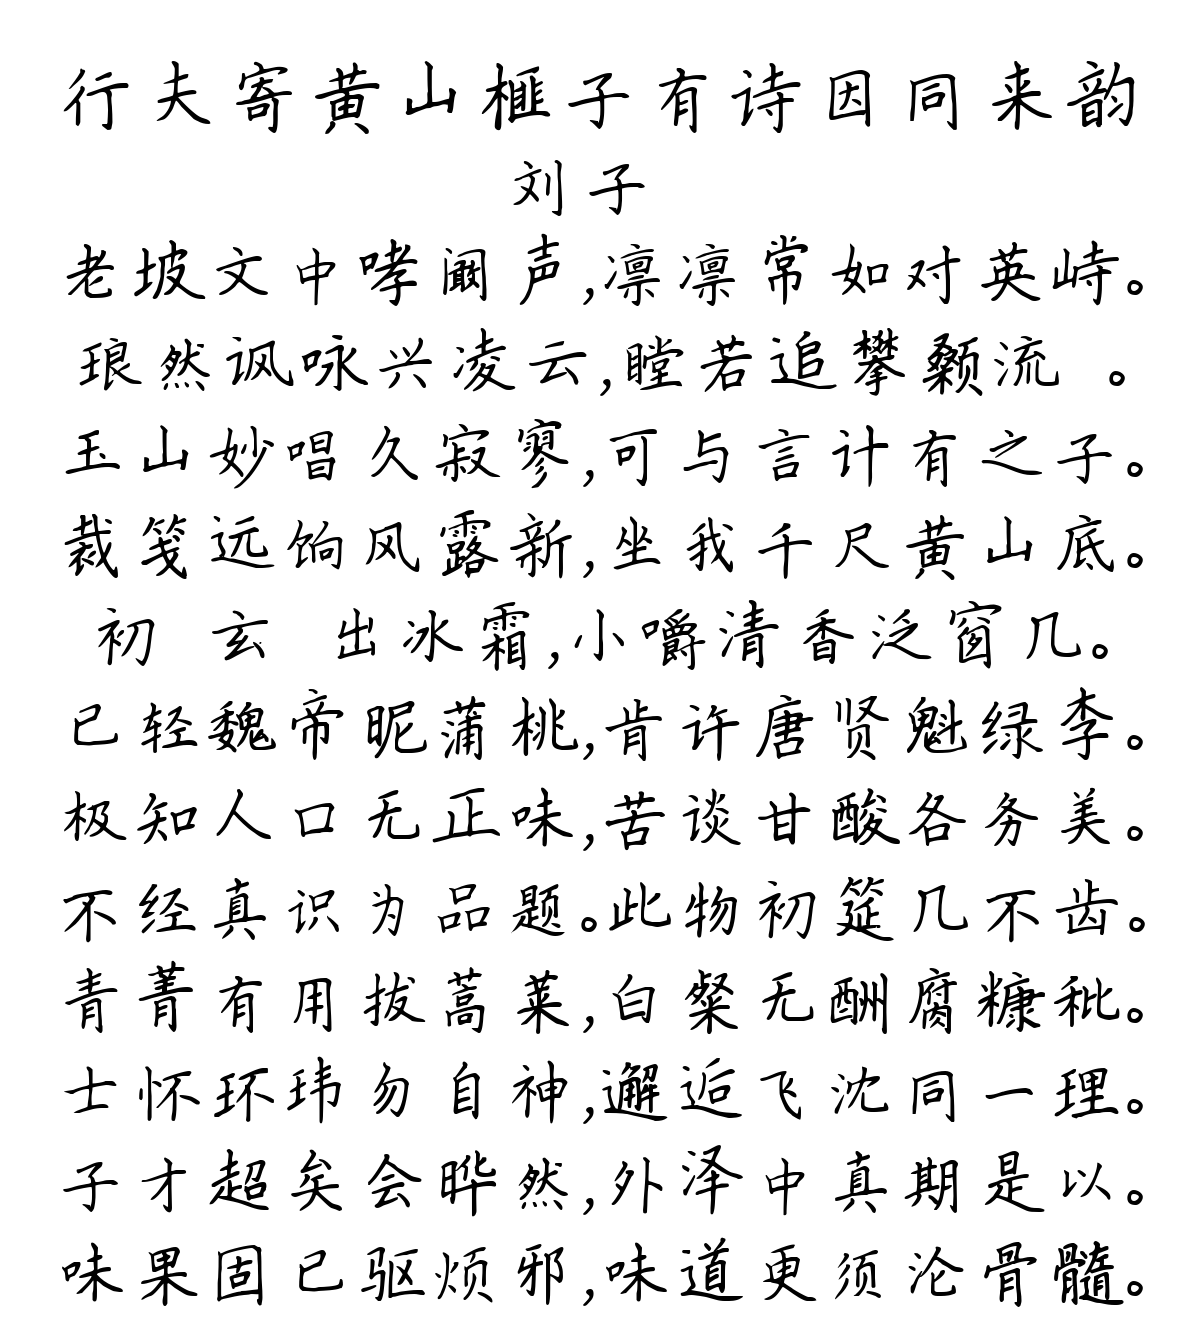 行夫寄黄山榧子有诗因同来韵
刘子
老坡文中哮阚声,凛凛常如对英峙。
琅然讽咏兴凌云,瞠若追攀颡流 。
玉山妙唱久寂寥,可与言计有之子。
裁笺远饷风露新,坐我千尺黄山底。
初 玄 出冰霜,小嚼清香泛窗几。
已轻魏帝昵蒲桃,肯许唐贤魁绿李。
极知人口无正味,苦谈甘酸各务美。
不经真识为品题。此物初筵几不齿。
青菁有用拔蒿莱,白粲无酬腐糠秕。
士怀环玮勿自神,邂逅飞沈同一理。
子才超矣会晔然,外泽中真期是以。
味果固已驱烦邪,味道更须沦骨髓。